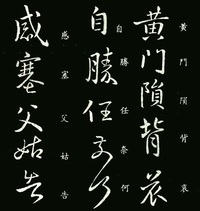 黄門陨背哀
黄门陨背哀
自勝任奈何
自勝任奈何
感塞父姑告
感塞父姑告